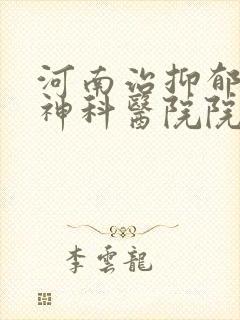 河南治抑郁
神科醫院院
李雲龍